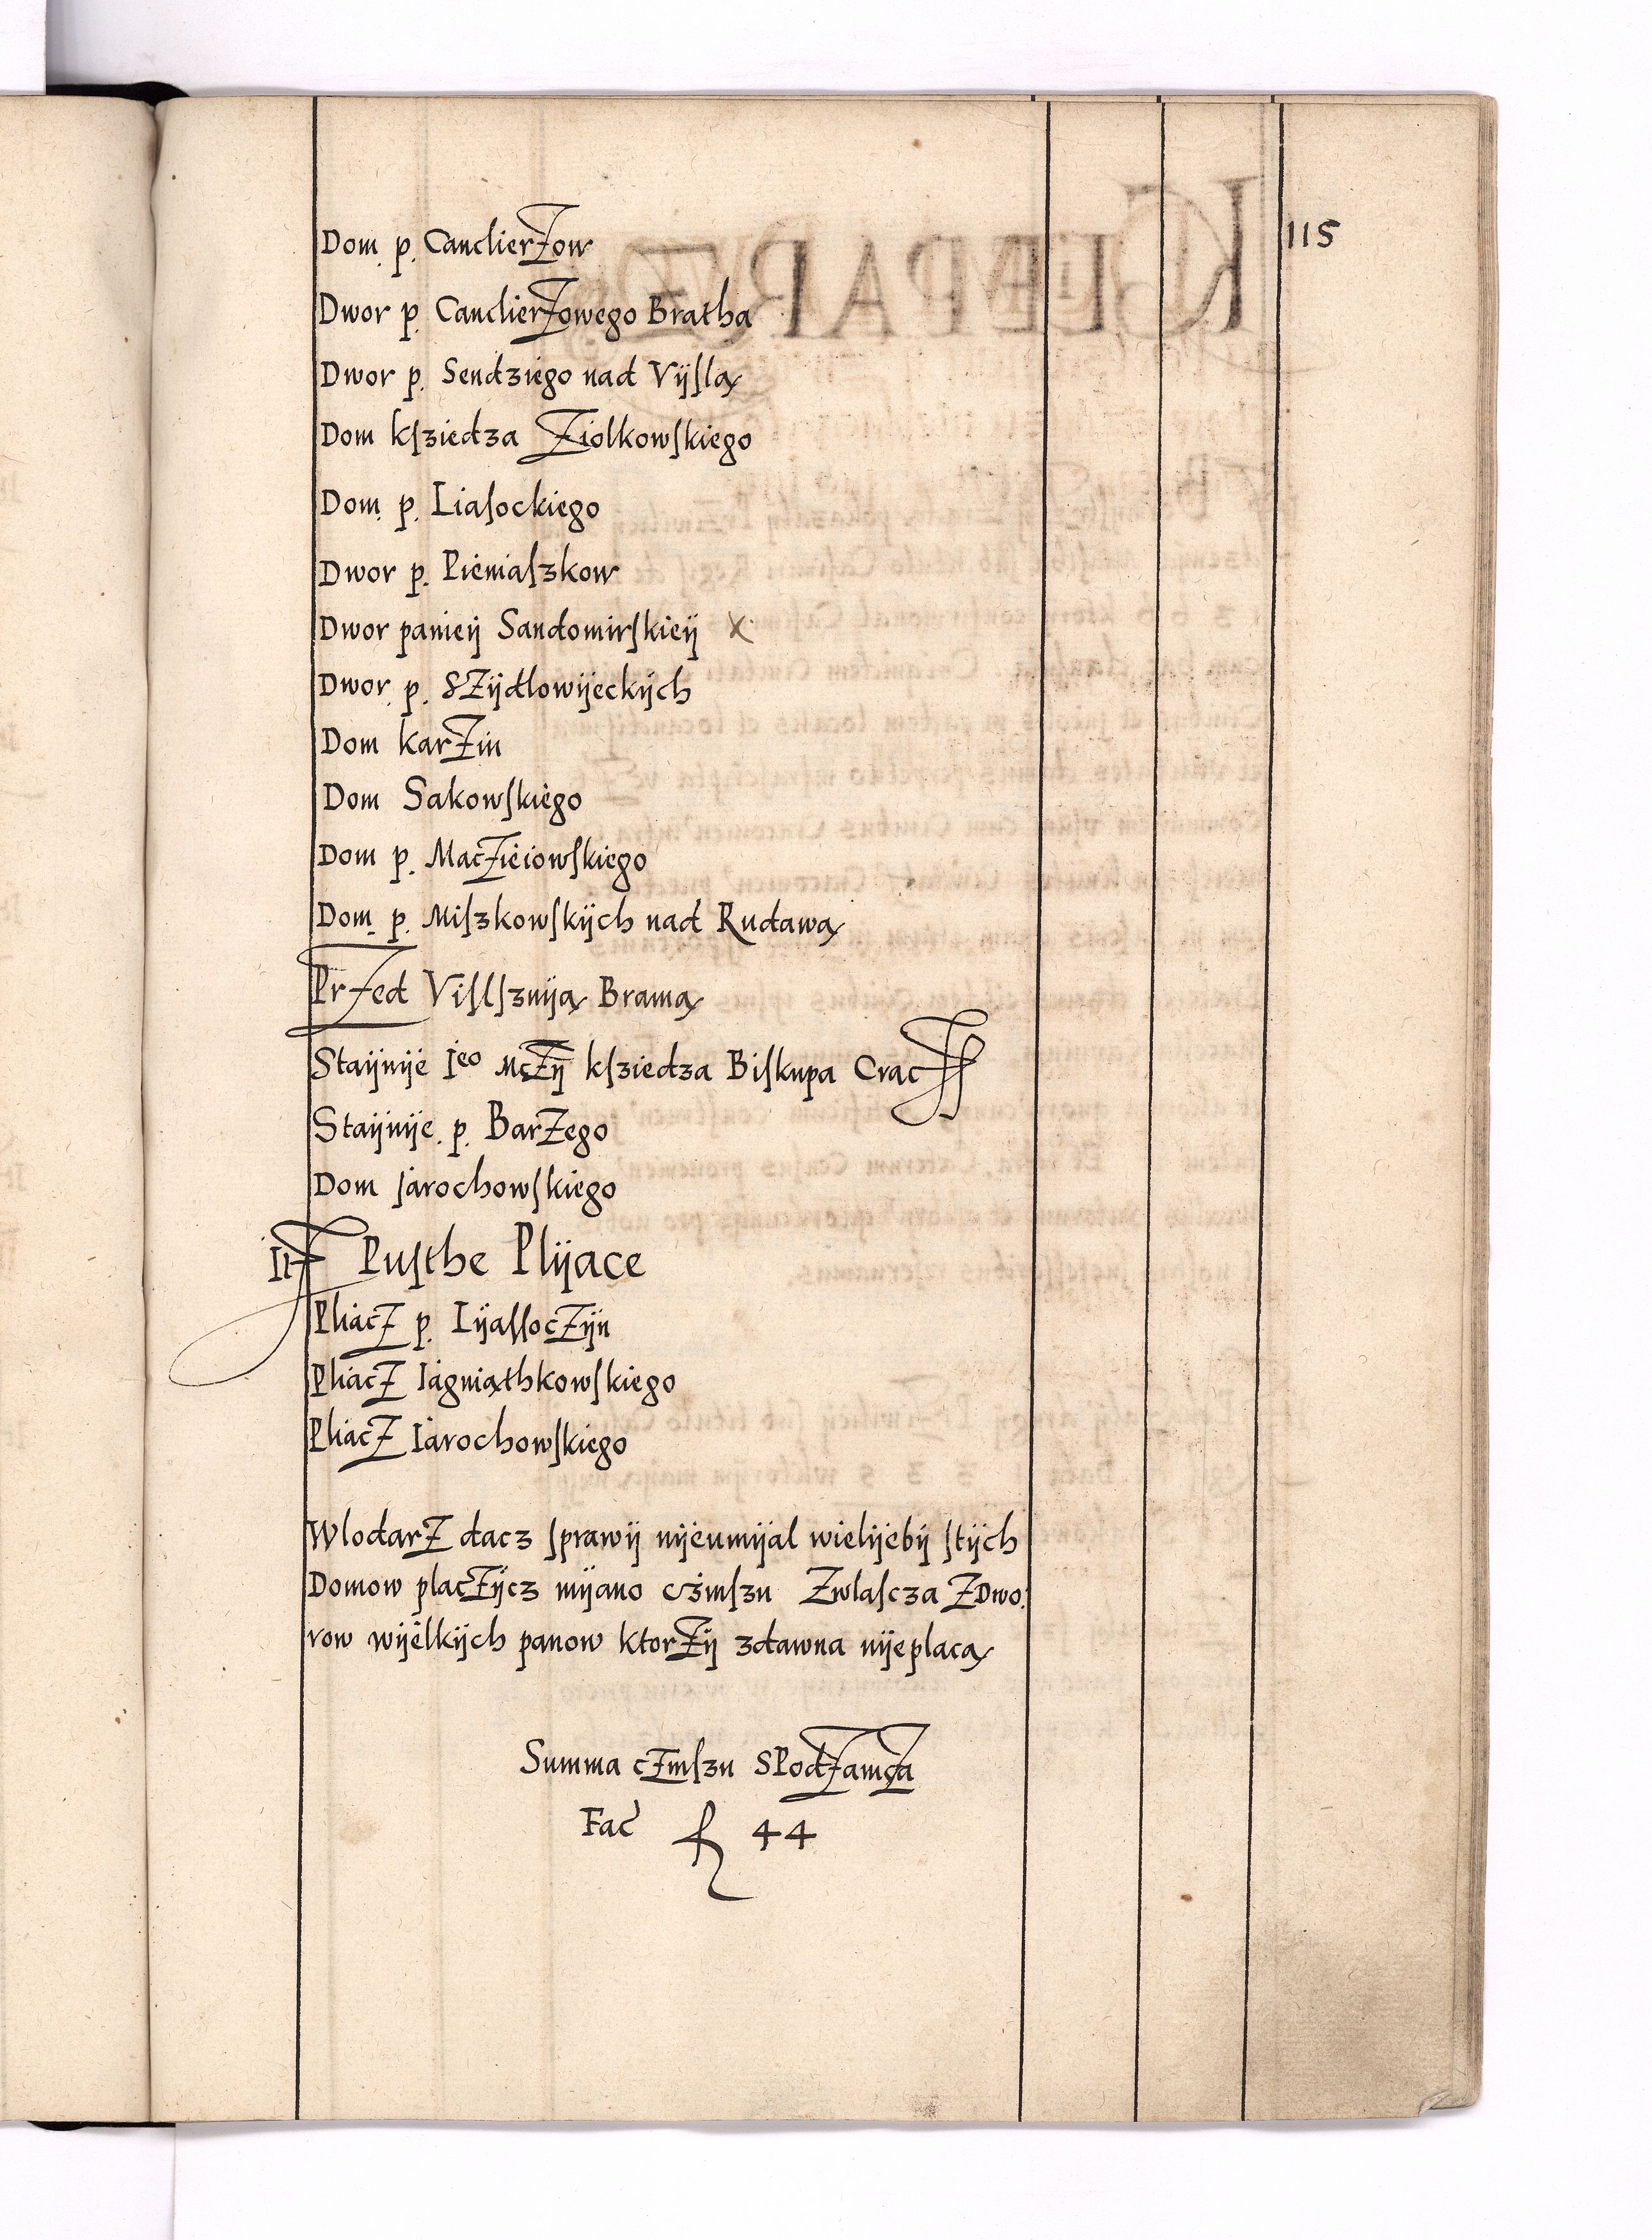 115
Dom p. CanclierZow
Dwor p. CanclierZowego Bratha
Dwor p. Sendziego nad Vÿſlą
Dom kſziedza Ziolkowſkiego
Dom p. Liaſockiego
Dwor p. Pieniaſzkow
Dwor panieÿ Sandomirſkieÿ x
Dwor p. SZÿdlowÿeckÿch
Dom karZin
Dom Sakowſkiego
Dom p. MacZieiowſkiego
Dom p. Miſzkowſkÿch nad Rudawą
PrZed Viſlſznÿą Bramą
Staÿnÿe Ieo McZÿ kſziedza Biſkupa Crac
Staÿnÿe p. BarZego
Dom Jarochowſkiego
It Puſthe Plÿace
PliacZ p. LÿaſſocZÿn
PliacZ Iagniąthkowſkiego
PliacZ Iarochowſkiego
WlodarZ dacz ſprawÿ nÿeumÿal wielÿebÿ ſtÿch
Domow placZÿcz mÿano czinſzu Zwlaſcza ZDwo
row wÿelkÿch panow ktorZÿ zdawna nÿeplacą
Summa cZinſzu SPodZamcZa
Fac fl 44